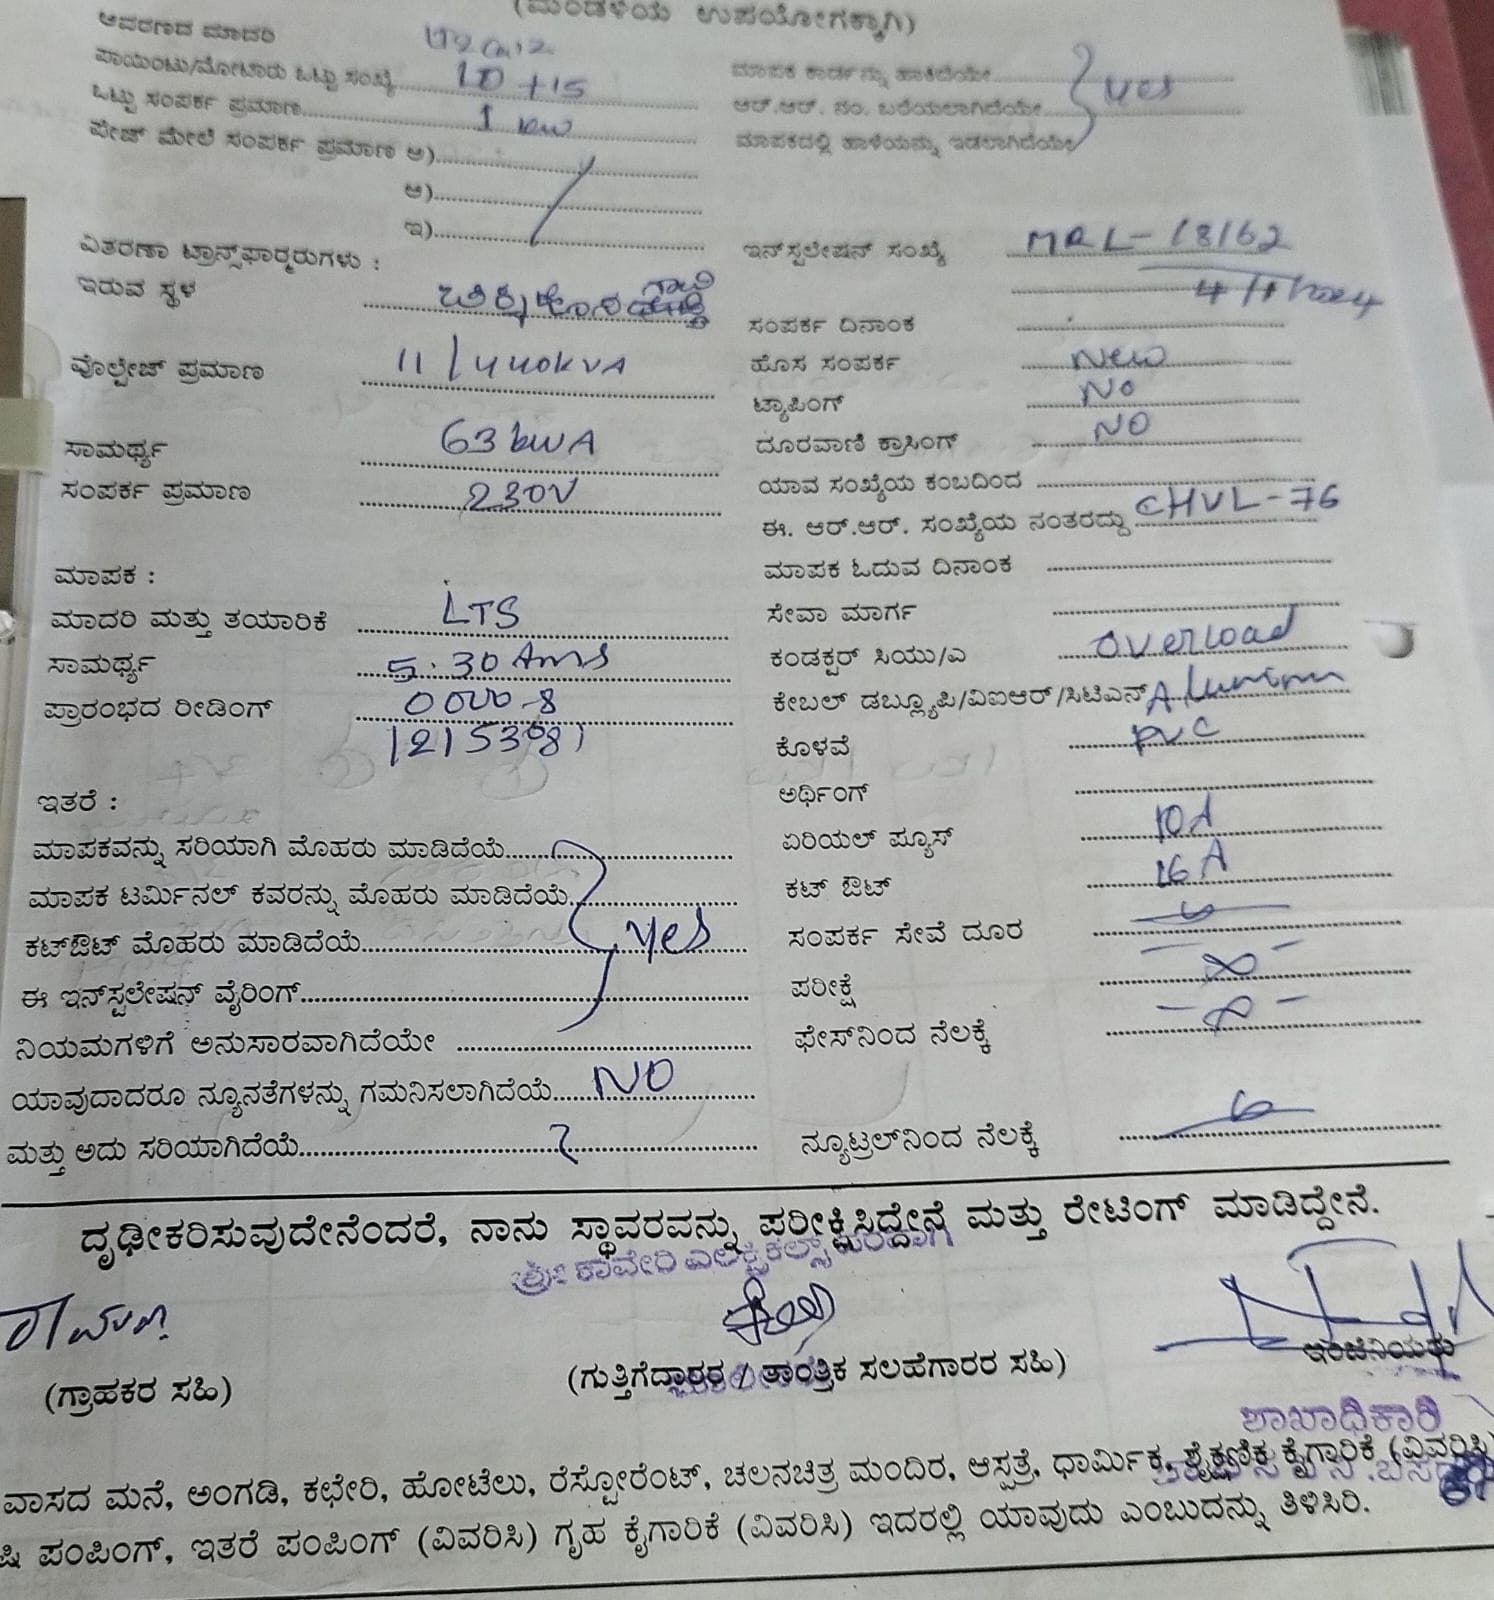 (ಮಂಡಳಿಯ ಉಪಯೋಗಕ್ಕಾಗಿ)
ಆವರಣದ ಮಾದರಿ
ಪಾಯಿಂಟು/ಮೋಟಾರು ಒಟ್ಟು ಸಂಖ್ಯೆ 10 +15
ಒಟ್ಟು ಸಂಪರ್ಕ ಪ್ರಮಾಣ 1 kw
ಪೇಜ್ ಮೇಲೆ ಸಂಪರ್ಕ ಪ್ರಮಾಣ ಅ)
ಆ)
ಇ)
ವಿತರಣಾ ಟ್ರಾನ್ಸ್‌ಫಾರ್ಮರುಗಳು :
ಇರುವ ಸ್ಥಳ
ವೊಲ್ಟೇಜ್ ಪ್ರಮಾಣ 11/440kVA
ಸಾಮರ್ಥ್ಯ 63
ಸಂಪರ್ಕ ಪ್ರಮಾಣ 230V
ಮಾಪಕ :
ಮಾದರಿ ಮತ್ತು ತಯಾರಿಕೆ LTS
ಸಾಮರ್ಥ್ಯ 5.30 Ams
ಪ್ರಾರಂಭದ ರೀಡಿಂಗ್
ಇತರೆ :
ಮಾಪಕವನ್ನು ಸರಿಯಾಗಿ ಮೊಹರು ಮಾಡಿದೆಯೆ
ಮಾಪಕ ಟರ್ಮಿನಲ್ ಕವರನ್ನು ಮೊಹರು ಮಾಡಿದೆಯೆ
ಕಟ್‌ಔಟ್ ಮೊಹರು ಮಾಡಿದೆಯೆ yes
ಈ ಇನ್‌ಸ್ಟಲೇಷನ್ ವೈರಿಂಗ್
ನಿಯಮಗಳಿಗೆ ಅನುಸಾರವಾಗಿದೆಯೇ
ಯಾವುದಾದರೂ ನ್ಯೂನತೆಗಳನ್ನು ಗಮನಿಸಲಾಗಿದೆಯೆ NO
ಮತ್ತು ಅದು ಸರಿಯಾಗಿದೆಯೆ
ಮಾಪಕ ಕಾರ್ಡನ್ನು ಹಾಕಿದೆಯೇ
ಆರ್.ಆರ್. ನಂ. ಬರೆಯಲಾಗಿದೆಯೇ yes
ಮಾಪಕದಲ್ಲಿ ಹಾಳೆಯನ್ನು ಇಡಲಾಗಿದೆಯೇ
ಇನ್‌ಸ್ಟಲೇಷನ್ ಸಂಖ್ಯೆ MRL-18162
ಸಂಪರ್ಕ ದಿನಾಂಕ
ಹೊಸ ಸಂಪರ್ಕ New
ಟ್ಯಾಪಿಂಗ್ NO
ದೂರವಾಣಿ ಕ್ರಾಸಿಂಗ್ NO
ಯಾವ ಸಂಖ್ಯೆಯ ಕಂಬದಿಂದ
ಈ. ಆರ್.ಆರ್. ಸಂಖ್ಯೆಯ ನಂತರದ್ದು CHVL-76
ಮಾಪಕ ಓದುವ ದಿನಾಂಕ
ಸೇವಾ ಮಾರ್ಗ
ಕಂಡಕ್ಟರ್ ಸಿಯು/ಎ overload
ಕೇಬಲ್ ಡಬ್ಲ್ಯೂಪಿ/ವಿಐಆರ್/ಸಿಟಿಎಸ್
ಕೊಳವೆ PVC
ಅರ್ಥಿಂಗ್
ಏರಿಯಲ್ ಪ್ಯೂಸ್ 10A
ಕಟ್ ಔಟ್ 16A
ಸಂಪರ್ಕ ಸೇವೆ ದೂರ
ಪರೀಕ್ಷೆ
ಫೇಸ್‌ನಿಂದ ನೆಲಕ್ಕೆ
ನ್ಯೂಟ್ರಲ್‌ನಿಂದ ನೆಲಕ್ಕೆ
ದೃಢೀಕರಿಸುವುದೇನೆಂದರೆ, ನಾನು ಸ್ಥಾವರವನ್ನು ಪರೀಕ್ಷಿಸಿದ್ದೇನೆ ಮತ್ತು ರೇಟಿಂಗ್ ಮಾಡಿದ್ದೇನೆ.
ಶ್ರೀ ಕಾವೇರಿ ಎಲೆಕ್ಟ್ರಿಕಲ್ಸ್
(ಗ್ರಾಹಕರ ಸಹಿ)
(ಗುತ್ತಿಗೆದಾರರ / ತಾಂತ್ರಿಕ ಸಲಹೆಗಾರರ ಸಹಿ)
ಇಂಜಿನಿಯರು
ಶಾಖಾಧಿಕಾರಿ
ವಾಸದ ಮನೆ, ಅಂಗಡಿ, ಕಛೇರಿ, ಹೋಟೆಲು, ರೆಸ್ಟೋರೆಂಟ್, ಚಲನಚಿತ್ರ ಮಂದಿರ, ಆಸ್ಪತ್ರೆ, ಧಾರ್ಮಿಕ, ಶೈಕ್ಷಣಿಕ ಕೈಗಾರಿಕೆ (ವಿವರಿಸಿ)
ಪಂಪಿಂಗ್, ಇತರೆ ಪಂಪಿಂಗ್ (ವಿವರಿಸಿ) ಗೃಹ ಕೈಗಾರಿಕೆ (ವಿವರಿಸಿ) ಇದರಲ್ಲಿ ಯಾವುದು ಎಂಬುದನ್ನು ತಿಳಿಸಿರಿ.